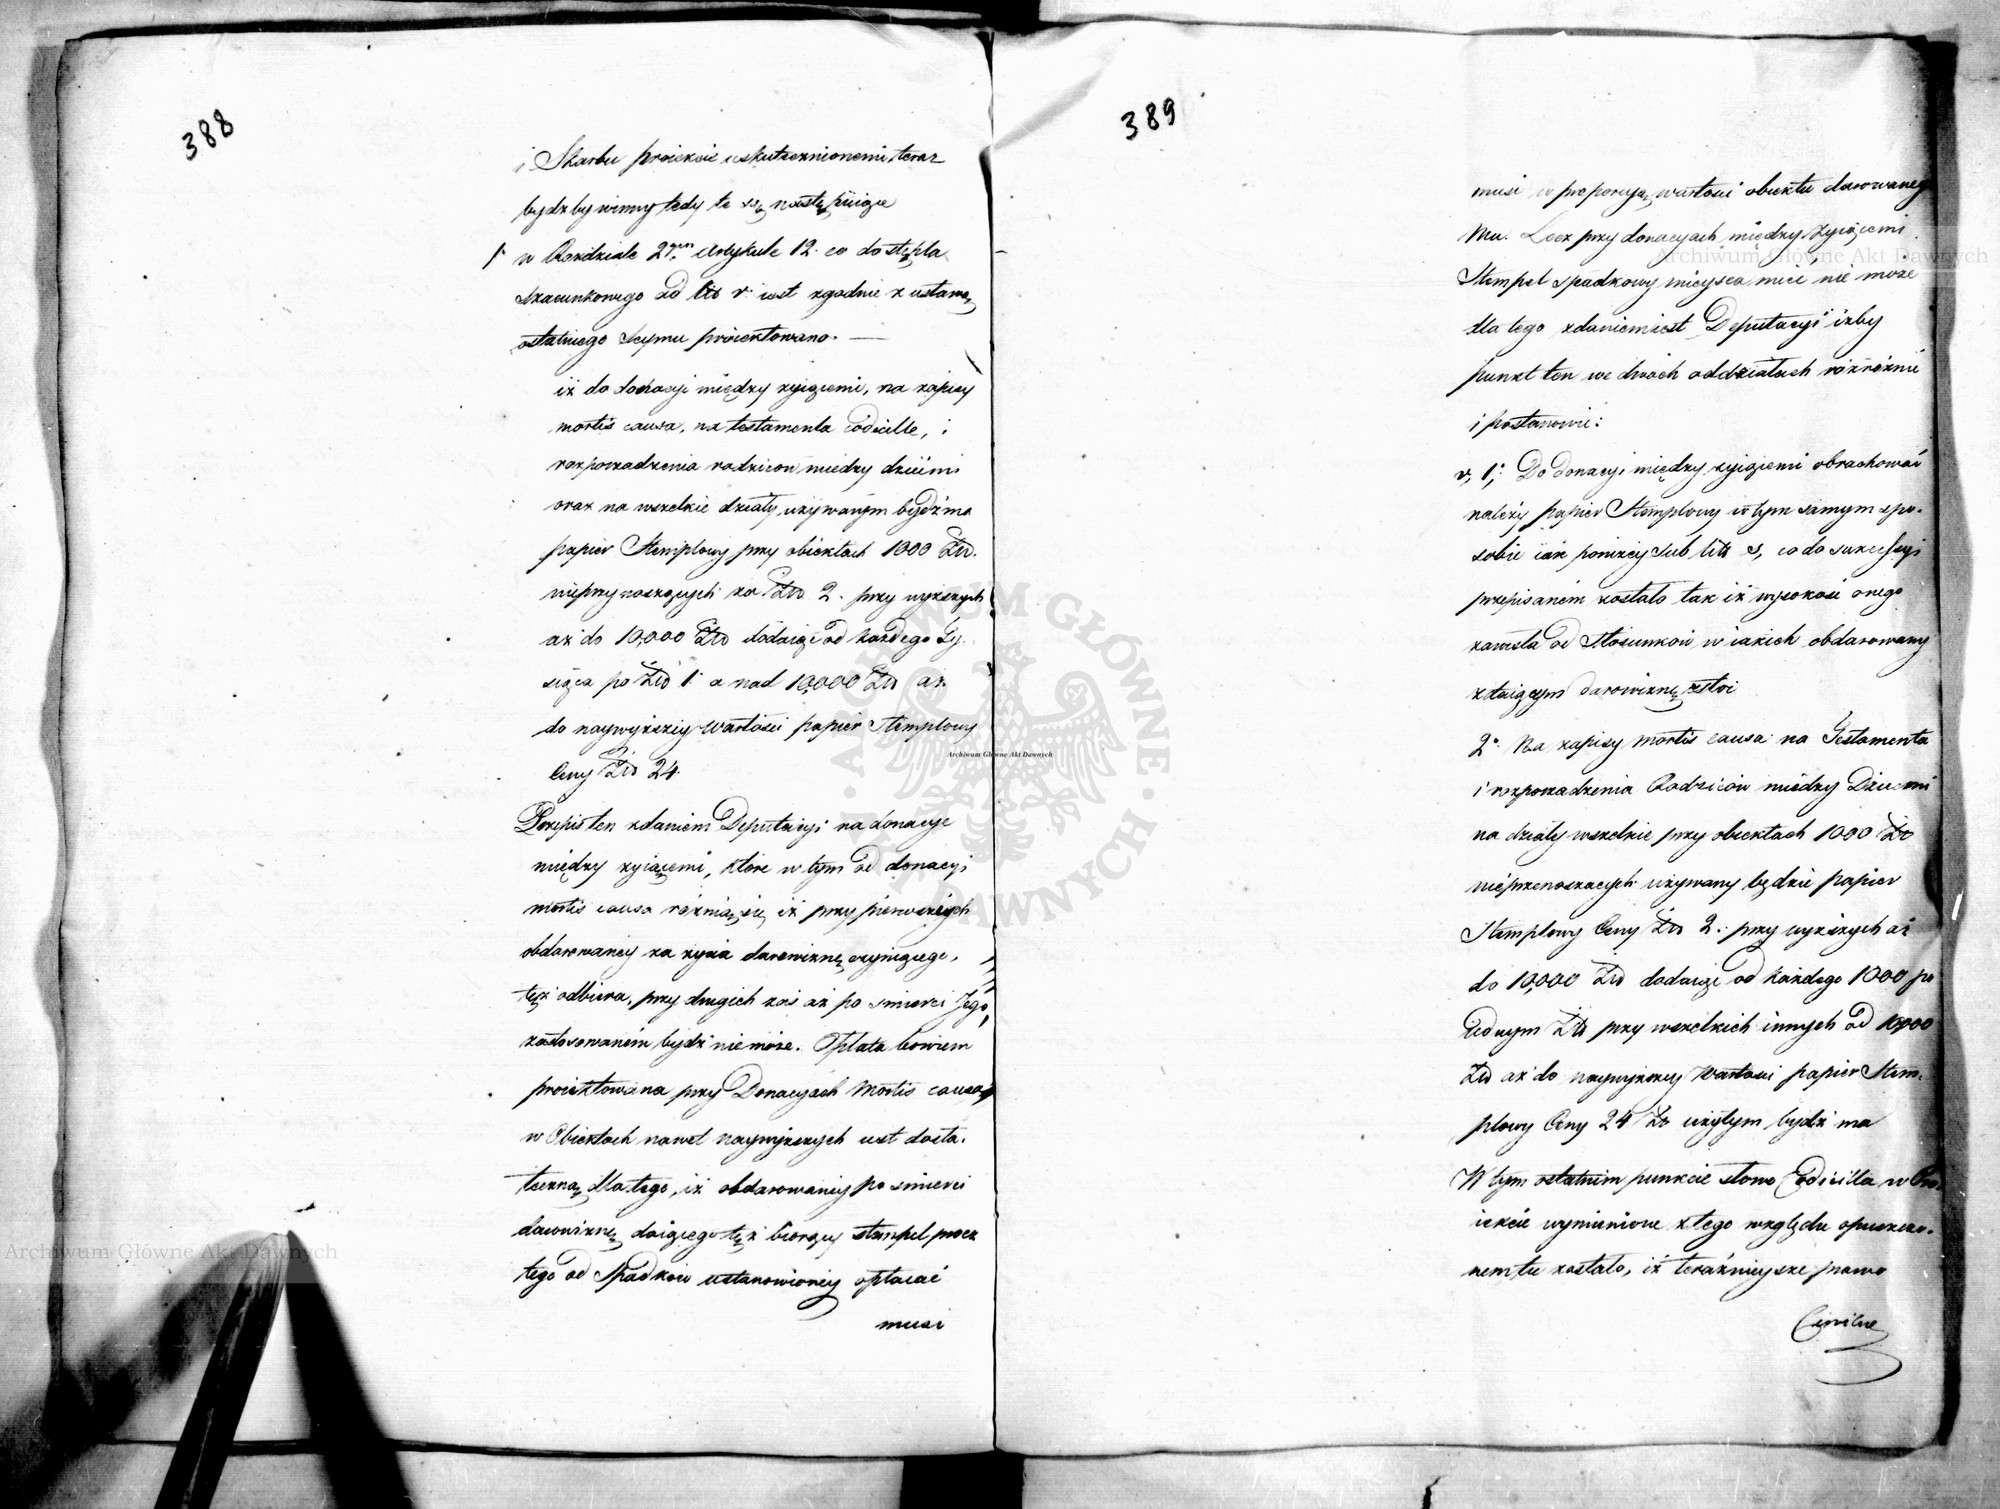 388
i Skarbu proiekcie uskutecznionemi teraz
bydź by winny tedy te są następuiące
1° w Rozdziale 2gim Artykule 12. co do stępla
szacunkowego ad litt v: iest zgodnie z ustawą
ostatniego Seymu proiektowano. —
iż do donacyi między żyiącemi, na zapisy
mortis causa, na testamenta codicille, i
rozporządzenia rodziców miedzy dziećmi
oraz na wszelkie działy, używanym bydź ma
papier Stemplowy przy obiektach 1000 Złt.
nieprzynoszących za Złt 2. przy wyższych
aż do 10,000 Złt dodaiąc od każdego Ty-
siąca po Złt 1. a nad 10,000 Złt aż
do naywyższey wartości papier stemplowy
Ceny Złt 24.
Przepis ten zdaniem Deputacyi na donacye
między żyiącemi, które w tym od donacyi
mortis causa różnią się, iż przy pierwszych
obdarowany za życia darowiznę czyniącego,
tęż odbiera, przy drugich zaś aż po śmierci Jego,
zastosowaném bydź nie może. Opłata bowiem
proiektowana przy Donacyach Mortis causa,
w Obiektach nawet naywyższych iest dosta-
teczną dla tego, iż obdarowany po śmierci
darowiznę daiącego tęż biorący stempel procz
tego od Spadków ustanowiony opłacać
musi
389
musi w proporcyą wartości obiektu darowanego
Mu. Lecz przy donacyach między żyiącemi
Stempel spadkowy mieysca mieć nie może
dla tego zdaniem iest Deputacyi iżby
punkt ten we dwóch oddziałach rozróżnić
i postanowić:
v, 1° Do donacyi między żyiącemi obrachować
należy papier Stemplowy w tym samym spo-
sobie iak poniżey sub litt s, co do sukcessyi
przepisaném zostało tak iż wysokość onego
zawisła od stosunków w iakich obdarowany
z daiącym darowiznę zstoi
2° Na zapisy mortis causa na Testamenta
i rozporządzenia Rodziców miedzy Dziećmi
na działy wszelkie przy obiektach 1000 Złt
nieprzenoszących używany będzie papier
Stemplowy Ceny Złt 2. przy wyższych aż
do 10,000 Złt dodaiąc od każdego 1000 po
iednym Złt przy wszelkich innych od 10000
Złt aż do naywyższey Wartości papier Stem-
plowy Ceny 24 Zł użytym bydź ma
W tym ostatnim punkcie słowo Codicilla w Pro-
iekcie wymienione z tego względu opuszczo-
nem tu zostało, iż teraźnieysze prawo
Civilne
Archiwum Główne Akt Dawnych
Archiwum Główne Akt Dawnych
Archiwum Główne Akt Dawnych
ARCHIWUM GŁÓWNE AKT DAWNYCH